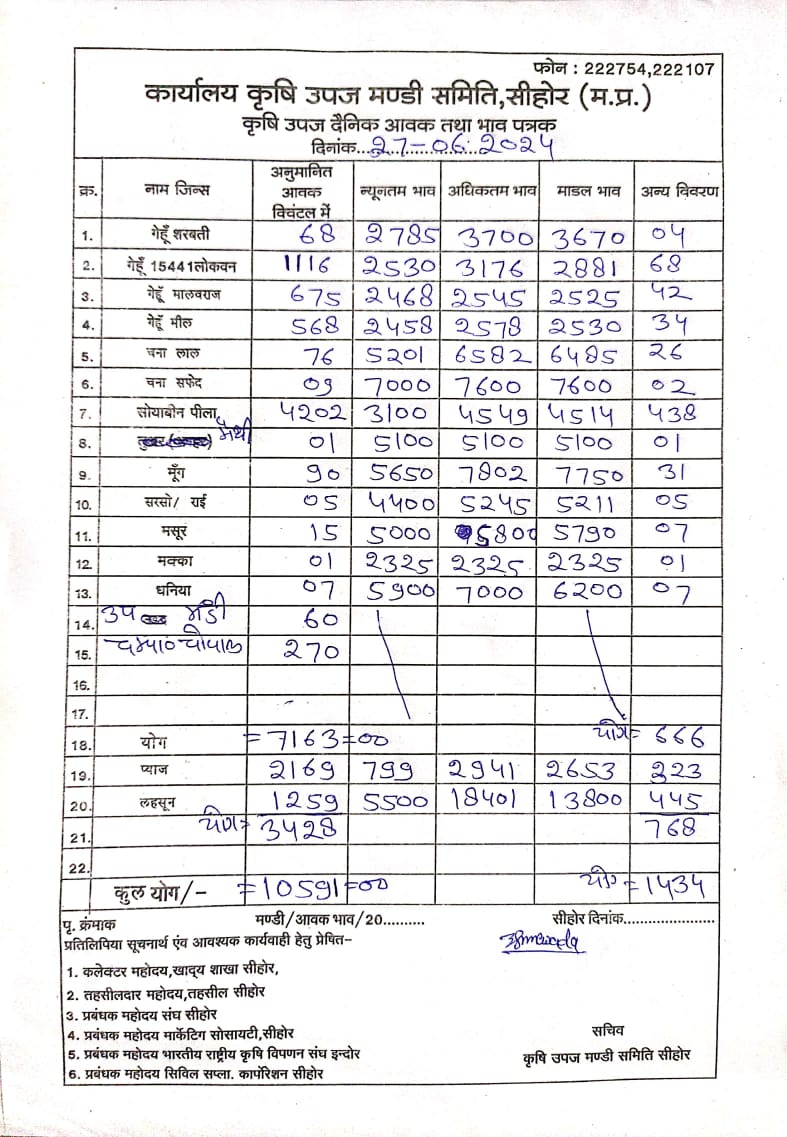 फोन : 222754,222107
कार्यालय कृषि उपज मण्डी समिति,सीहोर (म.प्र.)
कृषि उपज दैनिक आवक तथा भाव पत्रक
दिनांक...27-06-2024
क्र. नाम जिन्स अनुमानित आवक क्विंटल में न्यूनतम भाव अधिकतम भाव माडल भाव अन्य विवरण
1. गेहूँ शरबती 68 2785 3700 3670 04
2. गेहूँ 15441लोकवन 1116 2530 3176 2881 68
3. गेहूँ मालवराज 675 2468 2545 2525 42
4. गेहूँ मील 568 2458 2578 2530 34
5. चना लाल 76 5201 6582 6485 26
6. चना सफेद 09 7000 7600 7600 02
7. सोयाबीन पीला 4202 3100 4549 4514 438
8. मैथी 01 5100 5100 5100 01
9. मूँग 90 5650 7802 7750 31
10. सरसो/ राई 05 4400 5245 5211 05
11. मसूर 15 5000 5800 5790 07
12. मक्का 01 2325 2325 2325 01
13. धनिया 07 5900 7000 6200 07
14. उप मंडी 60
15. चौपाल 270
16.
17.
18. योग =7163=00 योग= 666
19. प्याज 2169 799 2941 2653 323
20. लहसून 1259 5500 18401 13800 445
21. योग= 3428 768
22.
कुल योग/- =10591=00 योग =1434
पृ. क्रंमाक मण्डी/आवक भाव/20.......... सीहोर दिनांक......................
प्रतिलिपिया सूचनार्थ एंव आवश्यक कार्यवाही हेतु प्रेषित-
1. कलेक्टर महोदय,खाद्य शाखा सीहोर,
2. तहसीलदार महोदय,तहसील सीहोर
3. प्रबंधक महोदय संघ सीहोर
4. प्रबंधक महोदय मार्केटिग सोसायटी,सीहोर
5. प्रबंधक महोदय भारतीय राष्ट्रीय कृषि विपणन संघ इन्दोर
6. प्रबंधक महोदय सिविल सप्ला. कार्पोरेशन सीहोर
सचिव
कृषि उपज मण्डी समिति सीहोर